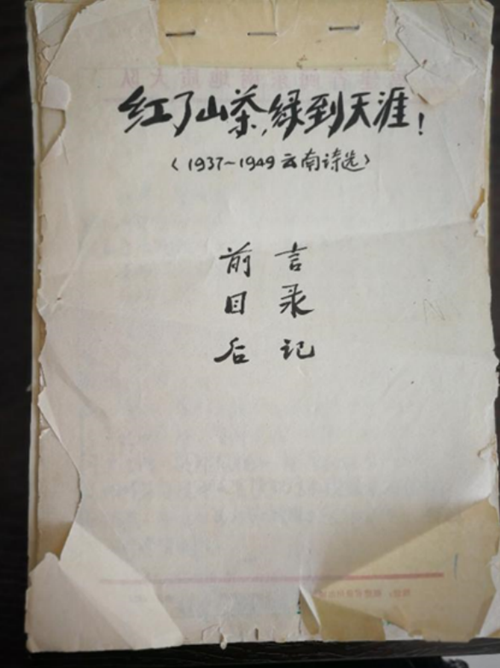 红了山茶，绿到天涯！
〈1937~1949云南诗选〉
前言
目录
后记